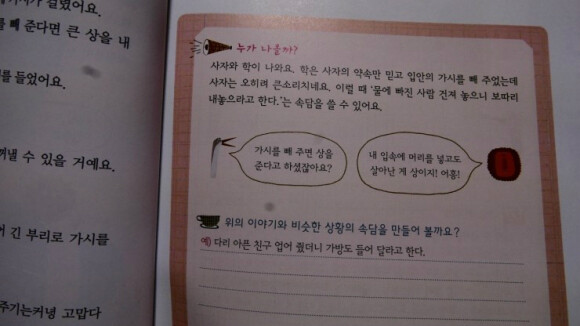 걸렸어요.
빼 준다면 큰 상을 내
를 들었어요.
낼 수 있을 거예요.
긴 부리로 가시를
주기는커녕 고맙다
누가 나올까?
사자와 학이 나와요. 학은 사자의 약속만 믿고 입안의 가시를 빼 주었는데
사자는 오히려 큰소리치네요. 이럴 때 '물에 빠진 사람 건져 놓으니 보따리
내놓으라고 한다.'는 속담을 쓸 수 있어요.
가시를 빼 주면 상을
준다고 하셨잖아요?
내 입속에 머리를 넣고도
살아난 게 상이지! 어흥!
위의 이야기와 비슷한 상황의 속담을 만들어 볼까요?
예) 다리 아픈 친구 업어 줬더니 가방도 들어 달라고 한다.